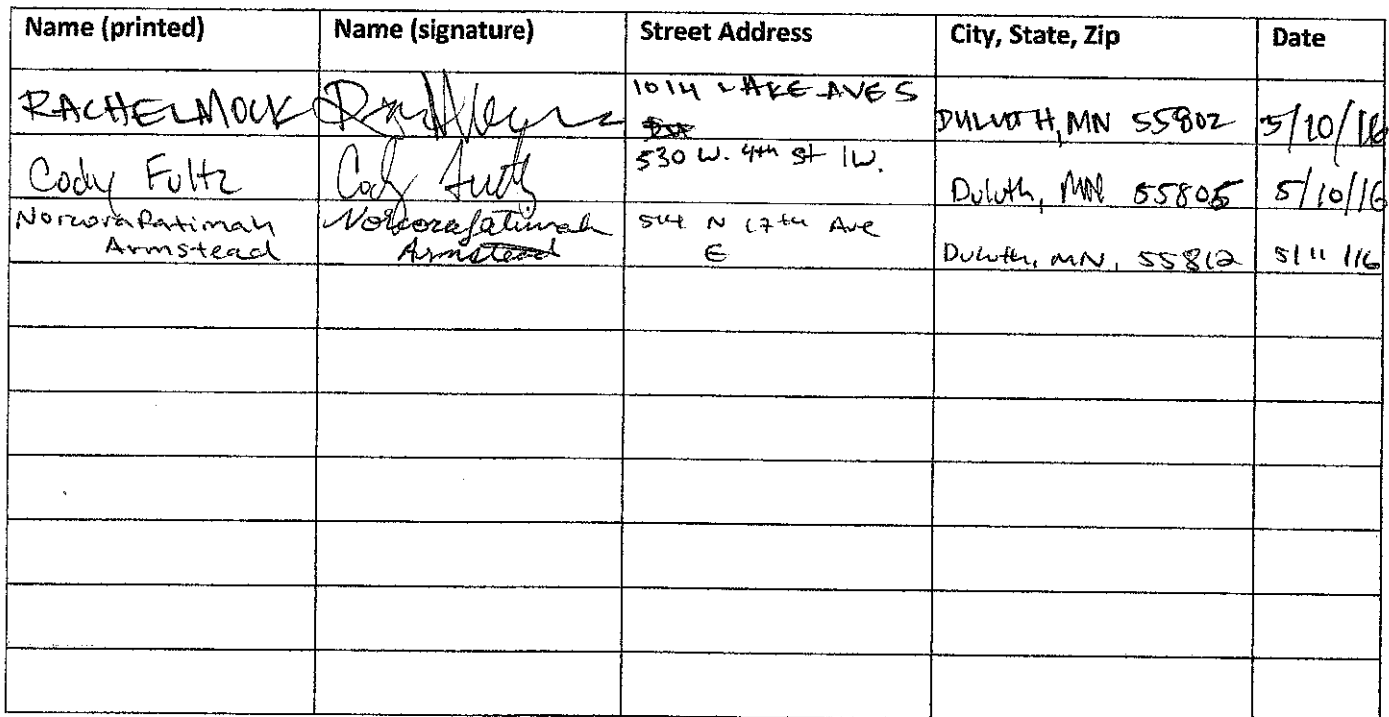 Name (printed) Name (signature) Street Address City, State, Zip Date
RACHEL MOCK 1014 LAKE AVE S DULUTH, MN 55802 5/10/16
Cody Fultz Cody Fultz 530 W. 4th St 1W. Duluth, MN 55805 5/10/16
514 N 17th Ave
Armstead Armstead E Duluth, MN, 55812 5/11/16